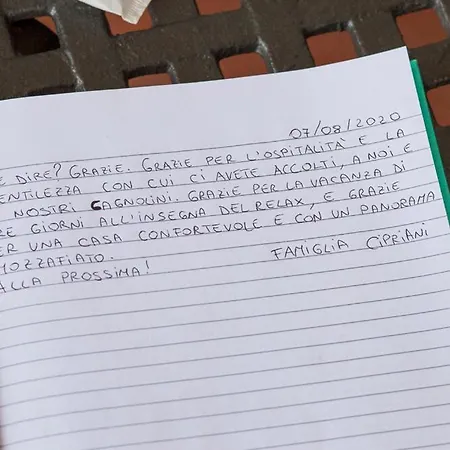 07/08/2020
E DIRE? GRAZIE. GRAZIE PER L'OSPITALITÀ E LA
ENTILEZZA CON CUI CI AVETE ACCOLTI, A NOI E
NOSTRI CAGNOLINI. GRAZIE PER LA VACANZA DI
RE GIORNI ALL'INSEGNA DEL RELAX, E GRAZIE
ER UNA CASA CONFORTEVOLE E CON UN PANORAMA
MOZZAFIATO.
ALLA PROSSIMA!
FAMIGLIA CIPRIANI